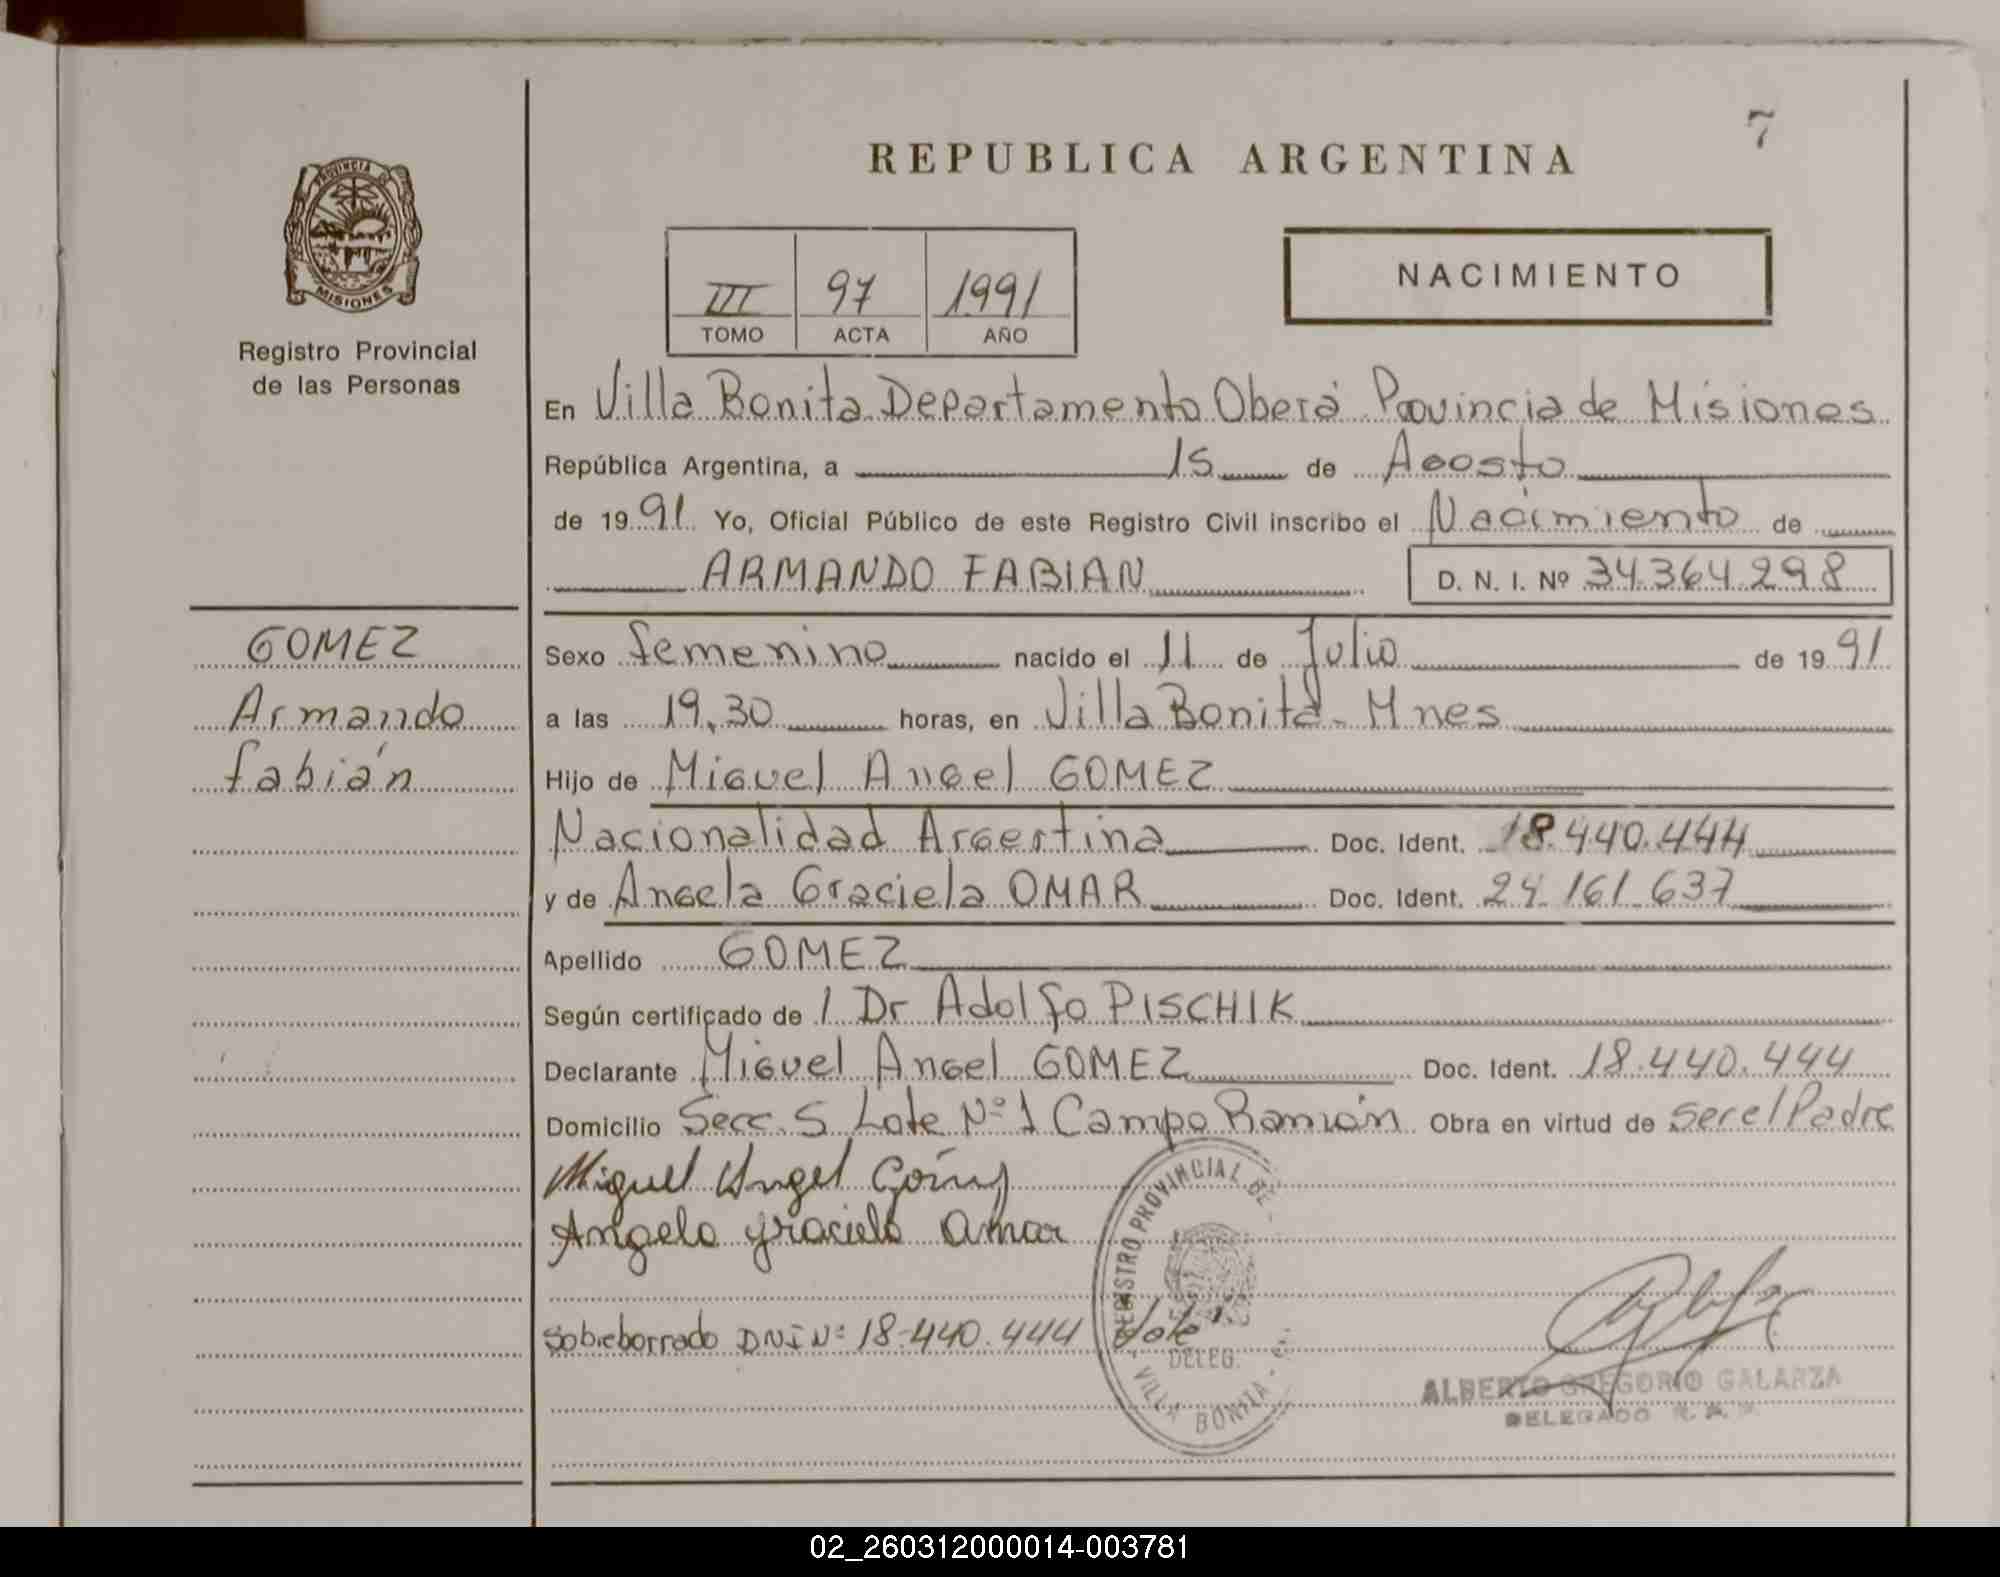 7
REPUBLICA ARGENTINA
PROVINCIA DE
MISIONES
Registro Provincial
de las Personas
III 97 1991
TOMO ACTA AÑO
NACIMIENTO
En Villa Bonita Departamento Oberá Provincia de Misiones
República Argentina, a 15 de Agosto
de 1991 Yo, Oficial Público de este Registro Civil inscribo el Nacimiento de
ARMANDO FABIAN D. N. I. Nº 34.364.298
GOMEZ
Armando
Fabián
Sexo femenino nacido el 11 de Julio de 1991
a las 19,30 horas, en Villa Bonita - Mnes
Hijo de Miguel Angel GOMEZ
Nacionalidad Argentina Doc. Ident. 18.440.444
y de Angela Graciela OMAR Doc. Ident. 24.161.637
Apellido GOMEZ
Según certificado de l Dr Adolfo PISCHIK
Declarante Miguel Angel GOMEZ Doc. Ident. 18.440.444
Domicilio Secc. 5 Lote Nº 1 Campo Ramón Obra en virtud de ser el Padre
Miguel Angel Gómez
Angela Graciela Omar
REGISTRO PROVINCIAL DE
DELEG.
VILLA BONITA
Sobreborrado DNI Nº 18.440.444
ALBERTO GREGORIO GALARZA
DELEGADO R. P.
02_260312000014-003781